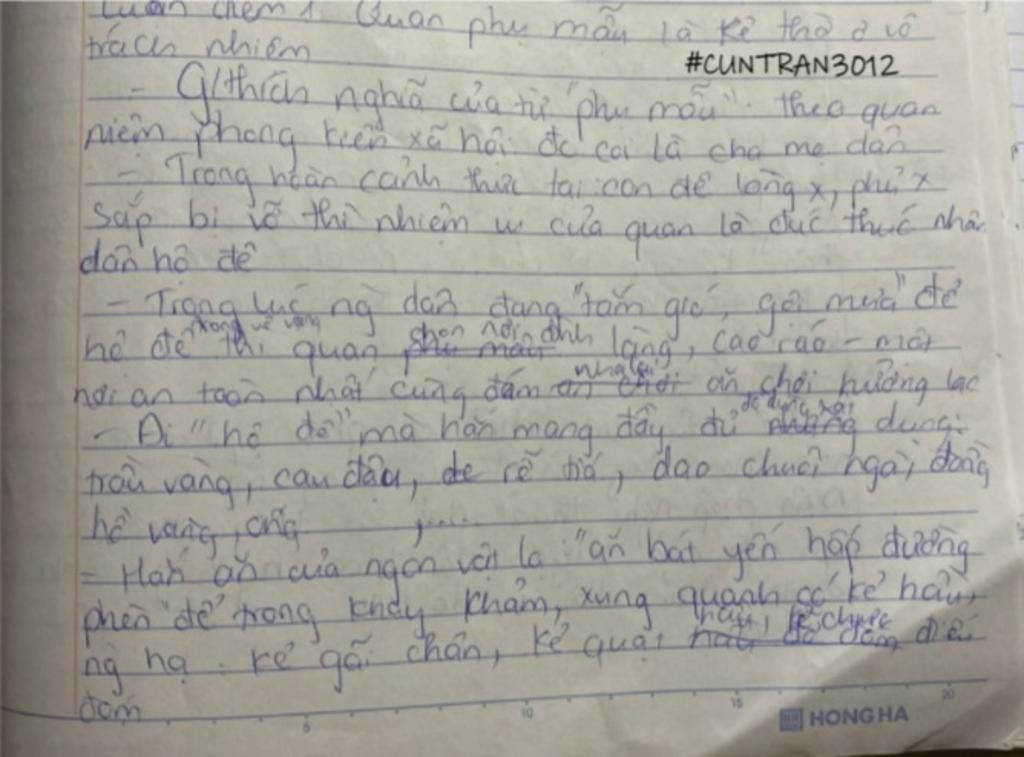 Luận điểm 1. Quan phụ mẫu là kẻ thờ ơ vô
trách nhiệm
#CUNTRAN3012
- G/thích nghĩa của từ "phụ mẫu". theo quan
niệm phong kiến xã hội đc coi là cha mẹ dân
- Trong hoàn cảnh thực tại con đê làng x, phủ x
sắp bị vỡ thì nhiệm vụ của quan là đốc thúc nhân
dân hộ đê
- Trong lúc ng dân đang "tắm gió, gội mưa" để
hộ đê thì quan chọn nơi đình làng, cao ráo - một
nơi an toàn nhất cùng đám nha lại ăn chơi hưởng lạc
- Đi "hộ đê" mà hắn mang đầy đủ đồ dùng:
trầu vàng, cau đậu, rễ tía, dao chuôi ngà, đồng
hồ vàng, ống ,....
- Hắn ăn của ngon vật lạ "ăn bát yến hấp đường
phèn" để trong khay khảm, xung quanh có kẻ hầu,
ng hạ. kẻ gãi chân, kẻ quạt hầu, kẻ chực điếu
đóm
5 10 15 20
HONG HA